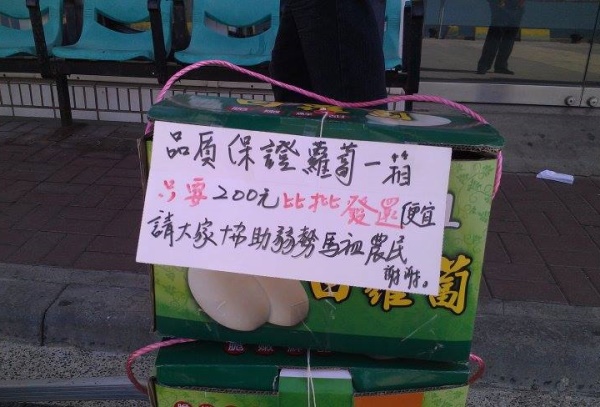 品質保證蘿蔔一箱
只要200元比批發還便宜
請大家協助弱勢馬祖農民
謝謝。
白蘿蔔